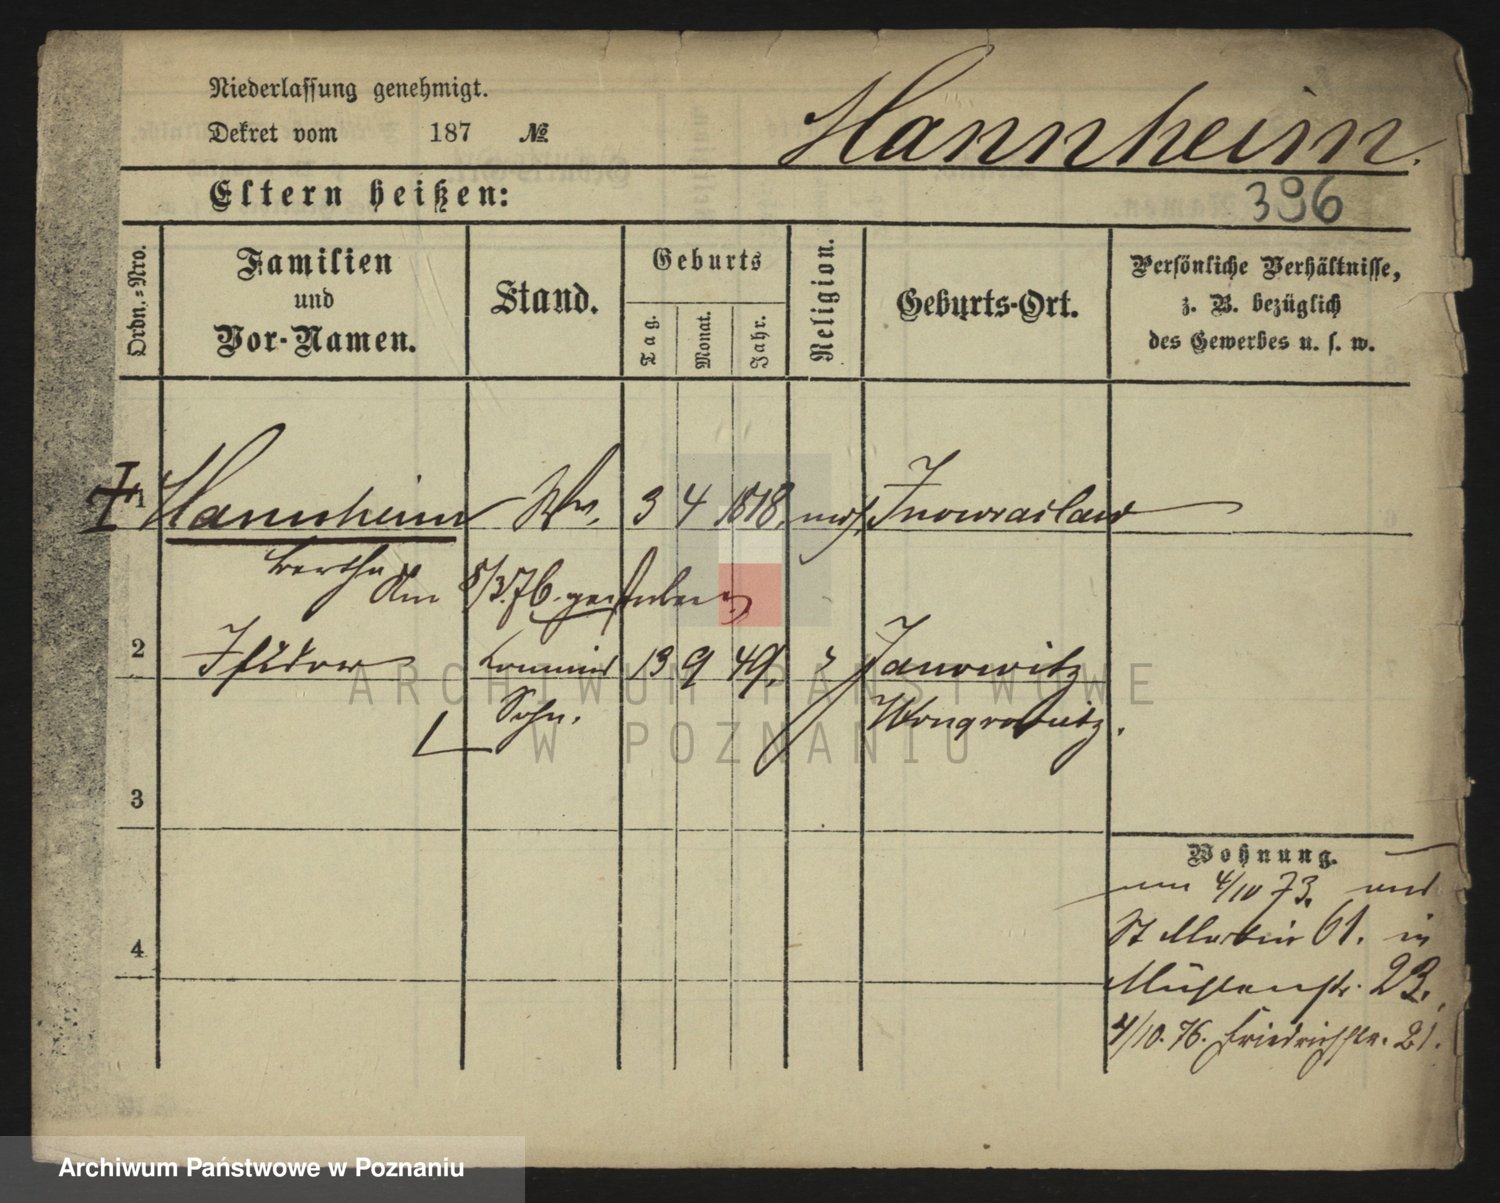 Niederlassung genehmigt.
Dekret vom 187 №
Mannheim.
Eltern heißen:
396
Ordn.-Nro.
Familien und Vor-Namen.
Stand.
Geburts
Tag.
Monat.
Jahr.
Religion.
Geburts-Ort.
Persönliche Verhältnisse,
z. B. bezüglich
des Gewerbes u. s. w.
1 Mannheim Ww. 3 4 1818. mos. Inowraclaw
Bertha
Am 8/3.76. gestorben
2 Isidor 13 9 49. Janowitz
Sohn. Wongrowitz.
3
Wohnung.
4/10 73. und
4
St Martin 61. in
Mühlenstr. 23.
4/10. 76. Friedrichstr. 21.
ARCHIWUM PAŃSTWOWE
W POZNANIU
Archiwum Państwowe w Poznaniu